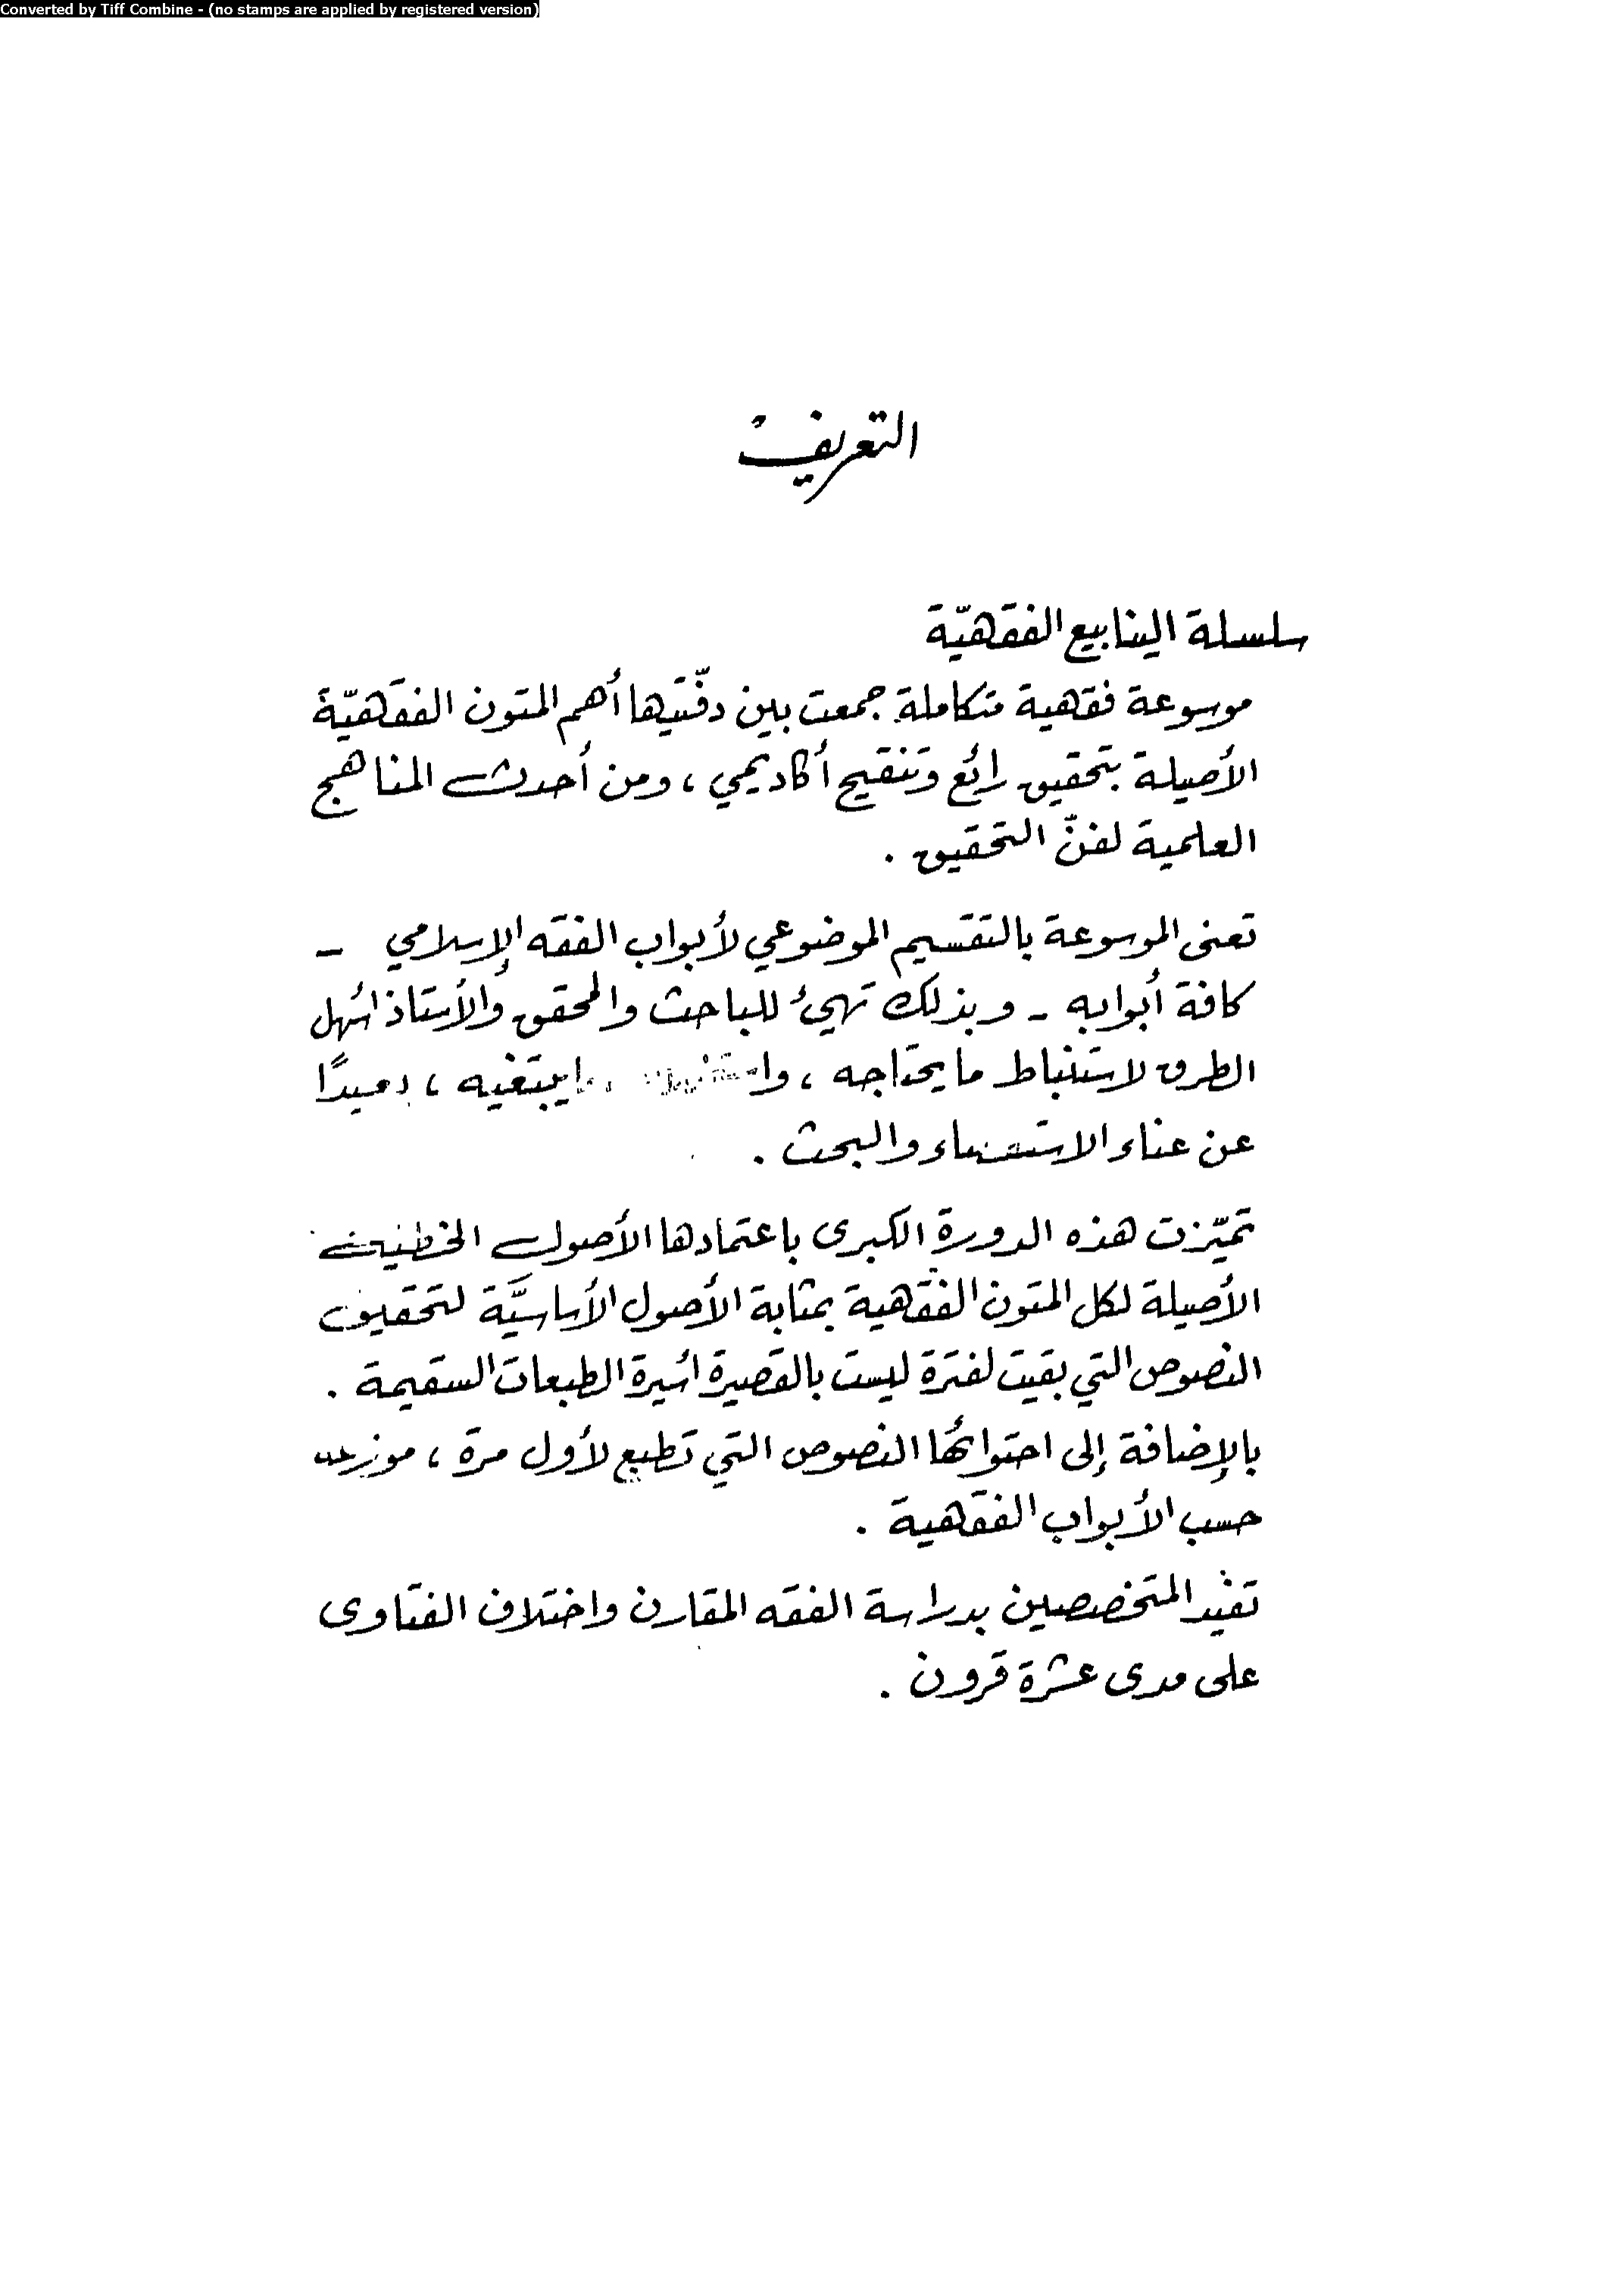 Converted by Tiff Combine - (no stamps are applied by registered version)
التعريف
سلسلة الينابيع الفقهيّة
موسوعة فقهية متكاملة جمعت بين دفّتيها أهم المتون الفقهيّة
الأصيلة بتحقيق رائع وتنقيح أكاديمي ، ومن أحدث المناهج
العلمية لفنّ التحقيق .
تعنى الموسوعة بالتقسيم الموضوعي لأبواب الفقه الإسلامي -
كافة أبوابه - وبذلك تهيئ للباحث والمحقق والأستاذ أسهل
الطرق لاستنباط ما يحتاجه ، يبتغيه ، بعيدًا
عن عناء الاستقصاء والبحث .
تميّزت هذه الدورة الكبرى باعتمادها الأصول الخطية
الأصيلة لكل المتون الفقهية بمثابة الأصول الأساسيَّة لتحقيق
النصوص التي بقيت لفترة ليست بالقصيرة أسيرة الطبعات السقيمة .
بالإضافة إلى احتوائها النصوص التي تطبع لأول مرة ، موزعة
حسب الأبواب الفقهية .
تفيد المتخصصين بدراسة الفقه المقارن واختلاف الفتاوى
على مدى عشرة قرون .